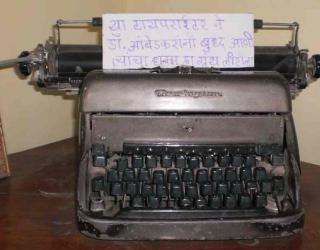 या टायपराईटर ने
डॉ. आंबेडकरांनी बुध्द आणि
त्याचा धम्म हा ग्रंथ लिहीला
Remington